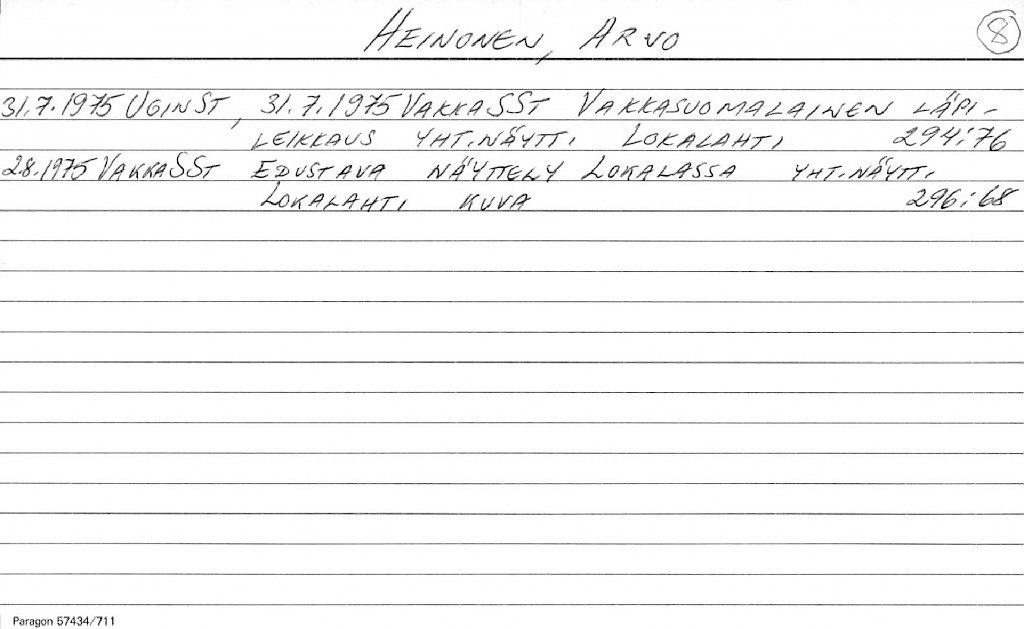 HEINONEN, ARVO 8
31.7.1975 UGINST, 31.7.1975 VAKKASST VAKKASUOMALAINEN LÄPI-
LEIKKAUS YHT.NÄYTT. LOKALAHTI 294:76
2.8.1975 VAKKASST EDUSTAVA NÄYTTELY LOKALASSA YHT.NÄYTT.
LOKALAHTI KUVA 296:68
Paragon 57434/711